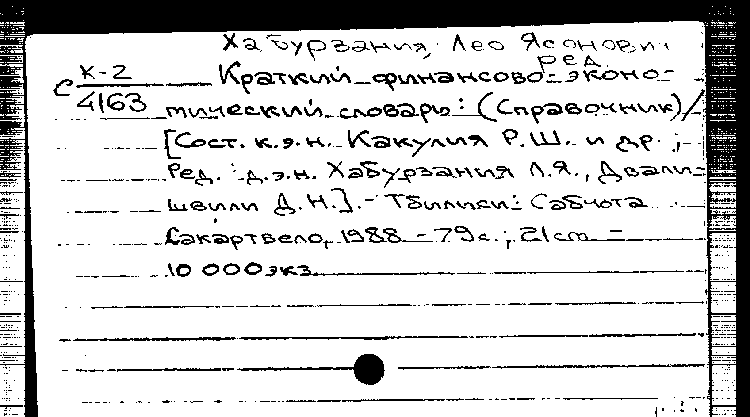 Хабурзания, Лео Ясонович
ред.
С К-2 Краткий финансово-эконо-
4163 мический словарь: (Справочник)/
[Сост. к.э.н. Какулия Р.Ш. и др.;
Ред.: д.э.н. Хабурзания Л.Я., Двали-
швили Д.Н.]. - Тбилиси: Сабчота
Сакартвело, 1988 - 79с.; 21cm -
10 000экз.